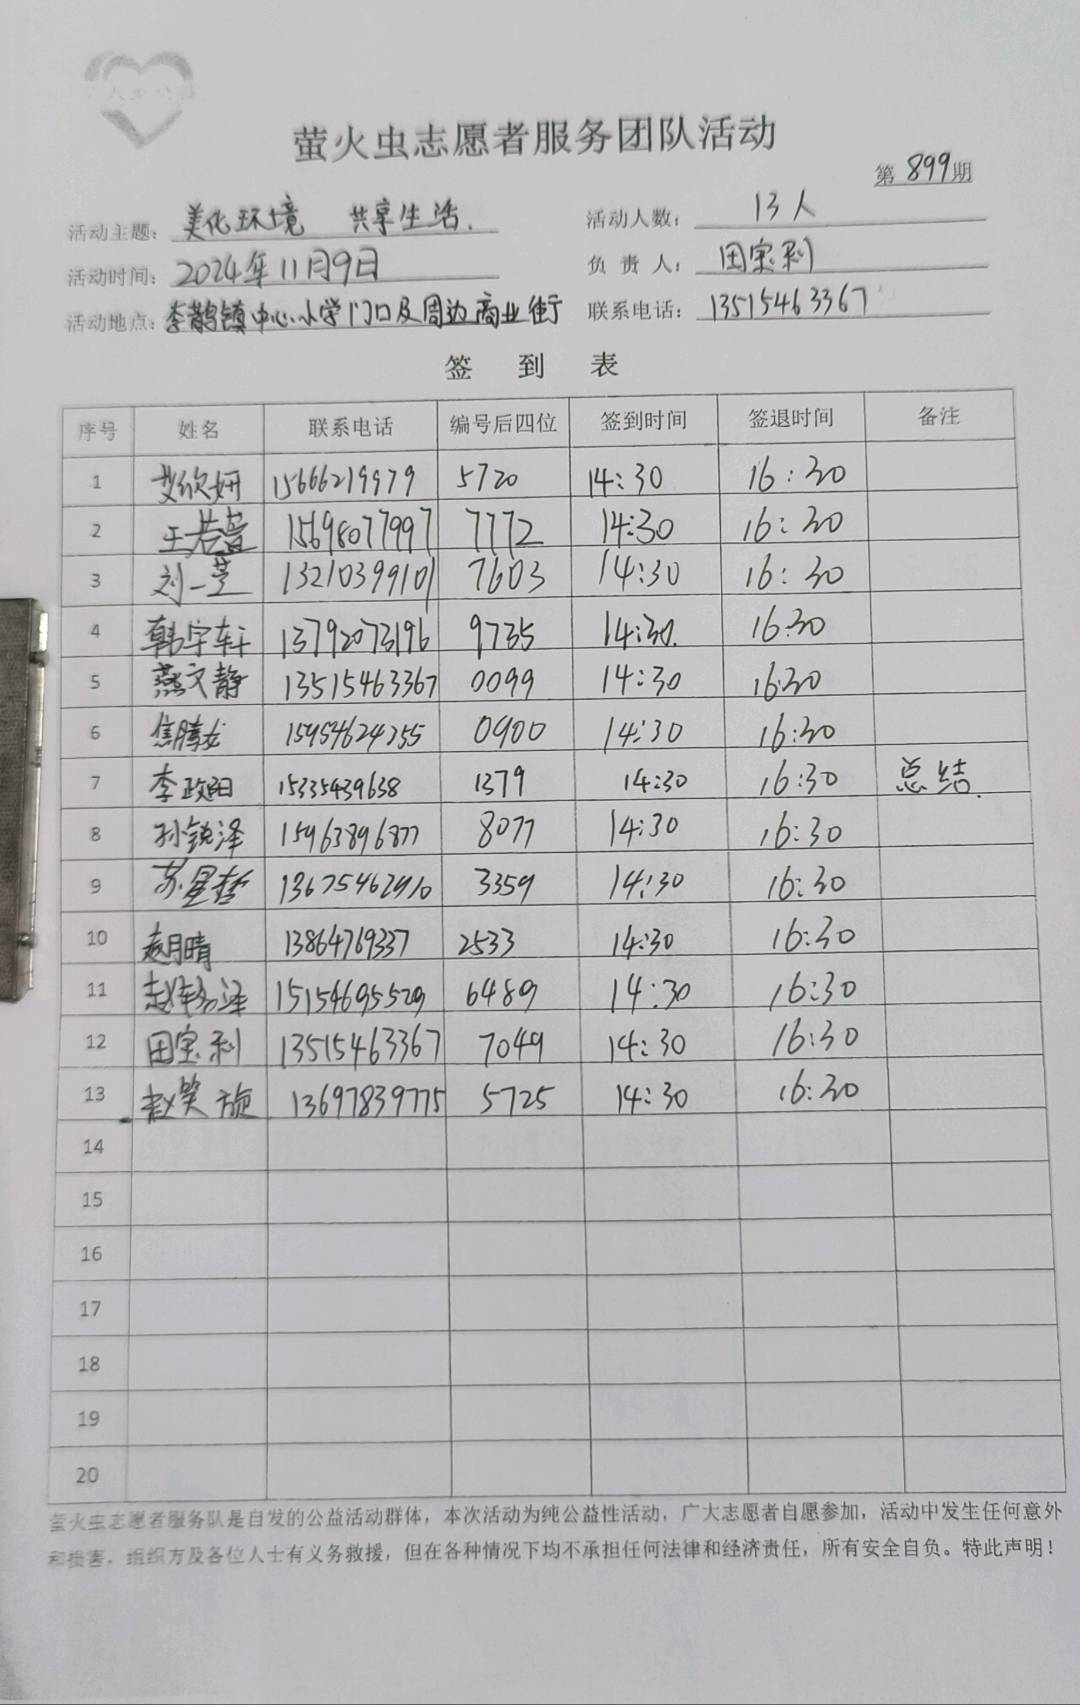 萤火虫志愿者服务团队活动
第 899 期
活动主题: 美化环境 共享生活. 活动人数: 13人
活动时间: 2024年11月9日 负 责 人: 田宝利
活动地点: 李鹊镇中心小学门口及周边商业街 联系电话: 13515463367
签 到 表
序号 姓名 联系电话 编号后四位 签到时间 签退时间 备注
1 艾欣妍 15666219979 5720 14:30 16:30
2 王若萱 15698077997 7772 14:30 16:30
3 刘一芝 13210399101 7603 14:30 16:30
4 韩宇轩 13792073196 9735 14:30. 16:30
5 燕文静 13515463367 0099 14:30 16:30
6 焦腾龙 15954624355 0900 14:30 16:30
7 李政阳 15335439638 1379 14:30 16:30 总结.
8 孙锐泽 15963896877 8077 14:30 16:30
9 苏星哲 13675462910 3359 14:30 16:30
10 赵月晴 13864769337 2533 14:30 16:30
11 15154695529 6489 14:30 16:30
12 田宝利 13515463367 7049 14:30 16:30
13 赵笑旋 13697839775 5725 14:30 16:30
14
15
16
17
18
19
20
萤火虫志愿者服务队是自发的公益活动群体，本次活动为纯公益性活动，广大志愿者自愿参加，活动中发生任何意外
和损害，组织方及各位人士有义务救援，但在各种情况下均不承担任何法律和经济责任，所有安全自负。特此声明！